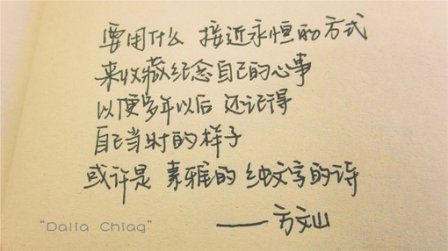 要用什么 接近永恒的方式
来收藏纪念自己的心事
以便多年以后 还记得
自己当时的样子
或许是 素雅的 纯文字的诗
——方文山
"Dalla Chiag"